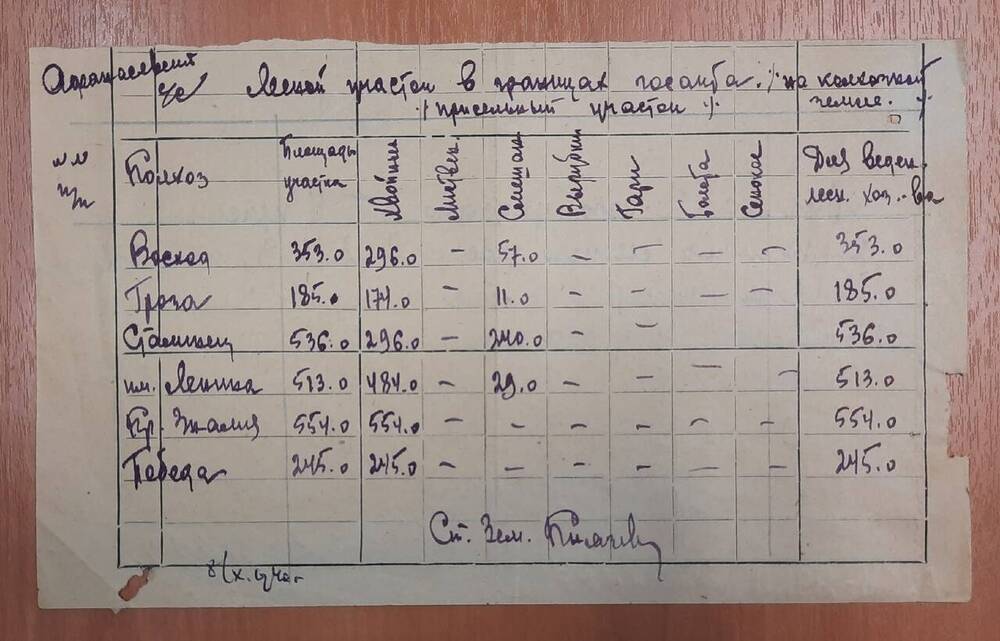 Лесной участок в границах госакта ./. на колхозной
./. присельный участок ./. земле. ./.
№№ п/п Колхоз Площадь участка Хвойных Листвен. Смешан. Вырубки Гари Болота Сенокос Для веден. лесн. хоз..-ва
Восход 353.0 296.0 – 57.0 – – – – 353.0
Гроза 185.0 174.0 – 11.0 – – – – 185.0
Сталинец 536.0 296.0 – 240.0 – – 536.0
им. Ленина 513.0 484.0 – 29.0 – – – – 513.0
Кр. Знамя 554.0 554.0 – – – – – – 554.0
Победа 245.0 245.0 – – – – – – 245.0
Ст. Зем.